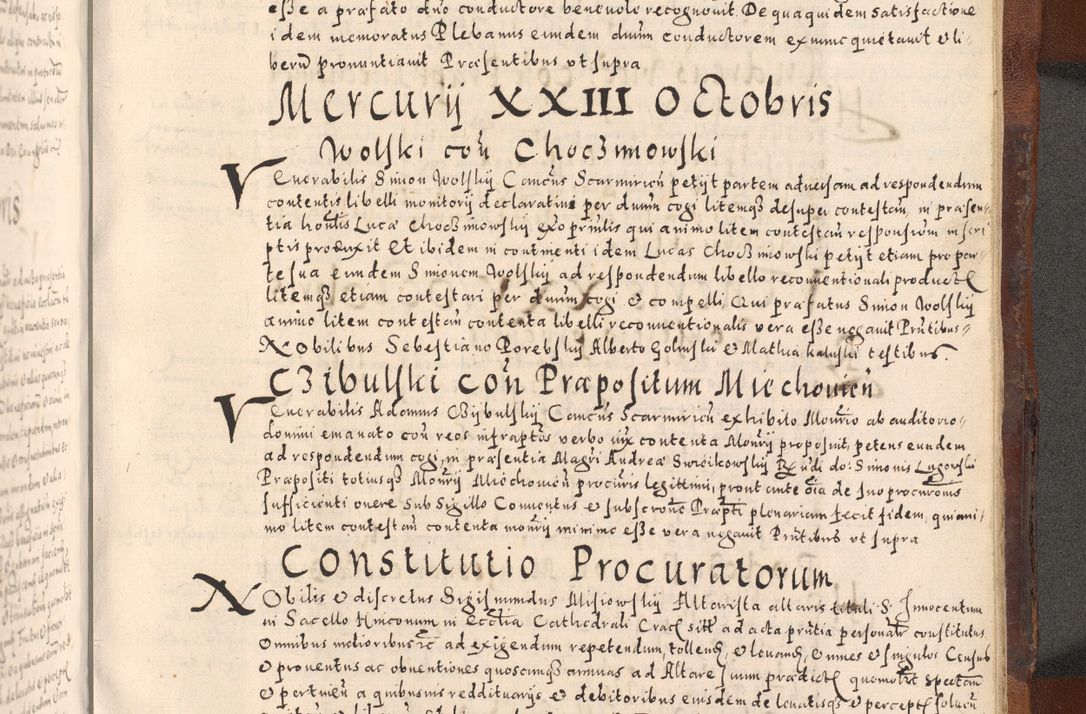 esse a præfato dno conductore benevole recognovit. De qua quidem satisfactione
idem memoratus Plebanus eundem dnum conductorem ex nunc quietavit et li-
berū pronuntiavit Præsentibus ut supra
Mercurij XXIII Octobris
Wolski coñ Choczimowski
Venerabilis Simon Wolskij Cancus Scarmirien petijt partem adversam ad respondendum
contentis libelli monitorij declarativi per dnum cogi litemq3 desuper contestan, in præsen-
tia hon̄lis Lucæ Choczimowskij ex oppto qui animo litem contestan responsivum in scri
ptis produxit Et ibidem in continenti idem Lucas Choczimowski petijt etiam pro par-
te sua eundem Simonem Wolskij ad respondendum libello reconventionali producto
litemq3 etiam contestari per dnum cogi et compelli, Qui præfatus Simon Wolskij
animo litem contestan contenta libelli reconventionalis vera esse negavit Prntibus
Nobilibus Sebestiano Porebskij Alberto Golinski et Mathia Kaluski testibus.
Czibulski coñ Præpositum Miechovien
Venerabilis Adamus Czijbulskij Cancus Scarmirien exhibito Monrio ab auditorio
domini emanato coñ reos infraptos verbo iux contenta Monrij proposuit, petens eundem
ad respondendum cogi, in præsentia Magri Andreæ Swiecikowskij Rndi do: Simonis Lugowski
Præpositi totiusq3 Monrij Miechovien procuris legittimi, prout ante oīa de suo procuronis
sufficienti onere sub Sigillo Conventus et subscrone Præpti plenariam fecit fidem, qui ani-
mo litem contestan contenta monrij minime esse vera negavit Prntibus ut supra
Constitutio Procuratorum
Nobilis et discretus Sigismundus Misiowskij Altarista altaris tituli S. Innocentum
in Sacello Hinconum in Ecctia Cathedrali Crac sitt ad acta prntia personalr constitutus
Omnibus melioribus ic ad exigendum repetendum, tollend, et levand, omnes et singulos Census
et proventus ac obventiones quoscunq3 annuas ad Altare suum prædict quomolibet spectan
et pertinen a quibusvis reddituarijs et debitoribus eiusdem de levatisq3 et percept solven